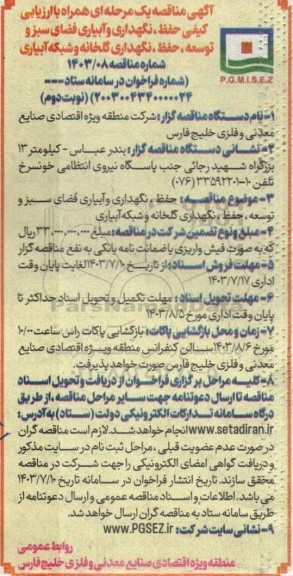 آگهی مناقصه یک مرحله ای همراه با ارزیابی
کیفی حفظ ، نگهداری و آبیاری فضای سبز و
توسعه ، حفظ ، نگهداری گلخانه و شبکه آبیاری
شماره مناقصه ۱۴۰۳/۰۸
(شماره فراخوان در سامانه ستاد ----
۲۰۰۳۰۰۴۳۴۰۰۰۰۰۲۴) (نوبت دوم)
P.G.M.I.S.E.Z
۱- نام دستگاه مناقصه گزار: شرکت منطقه ویژه اقتصادی صنایع
معدنی و فلزی خلیج فارس
۲- نشانی دستگاه مناقصه گزار: بندر عباس - کیلومتر ۱۳
بزرگراه شهید رجائی جنب پاسگاه نیروی انتظامی خونسرخ
تلفن ۱۰-۳۳۵۹۲۳۰۱ (۰۷۶)
۳- موضوع مناقصه: حفظ ، نگهداری و آبیاری فضای سبز و
توسعه ، حفظ ، نگهداری گلخانه و شبکه آبیاری
۴- مبلغ و نوع تضمین شرکت در مناقصه: مبلغ ۳۳,۰۰۰,۰۰۰,۰۰۰ ریال
که به صورت فیش واریزی یا ضمانت نامه بانکی به نفع مناقصه گزار
۵- مهلت فروش اسناد: از تاریخ ۱۴۰۳/۷/۱۰ لغایت پایان وقت
اداری ۱۴۰۳/۷/۱۷
۶- مهلت تحویل اسناد : مهلت تکمیل و تحویل اسناد حداکثر تا
پایان وقت اداری مورخ ۱۴۰۳/۸/۵
۷- زمان و محل بازگشایی پاکات: بازگشایی پاکات راس ساعت ۱۰/۰۰
مورخ ۱۴۰۳/۸/۶ سالن کنفرانس منطقه ویژه اقتصادی صنایع
معدنی و فلزی خلیج فارس صورت خواهد پذیرفت.
۸- کلیه مراحل برگزاری فراخوان از دریافت و تحویل اسناد
مناقصه تا ارسال دعوتنامه جهت سایر مراحل مناقصه ، از طریق
درگاه سامانه تدارکات الکترونیکی دولت (ستاد) به آدرس:
www.setadiran.ir انجام خواهد شد. لازم است مناقصه گران
در صورت عدم عضویت قبلی ، مراحل ثبت نام در سایت مذکور
و دریافت گواهی امضای الکترونیکی را جهت شرکت در مناقصه
محقق سازند. تاریخ انتشار فراخوان در سامانه تاریخ ۱۴۰۳/۷/۱۰
می باشد. اطلاعات و اسناد مناقصه عمومی و ارسال دعوتنامه از
طریق سامانه ستاد به مناقصه گران ارسال خواهد شد.
۹- نشانی سایت شرکت: www.PGSEZ.ir
روابط عمومی
منطقه ویژه اقتصادی صنایع معدنی و فلزی خلیج فارس